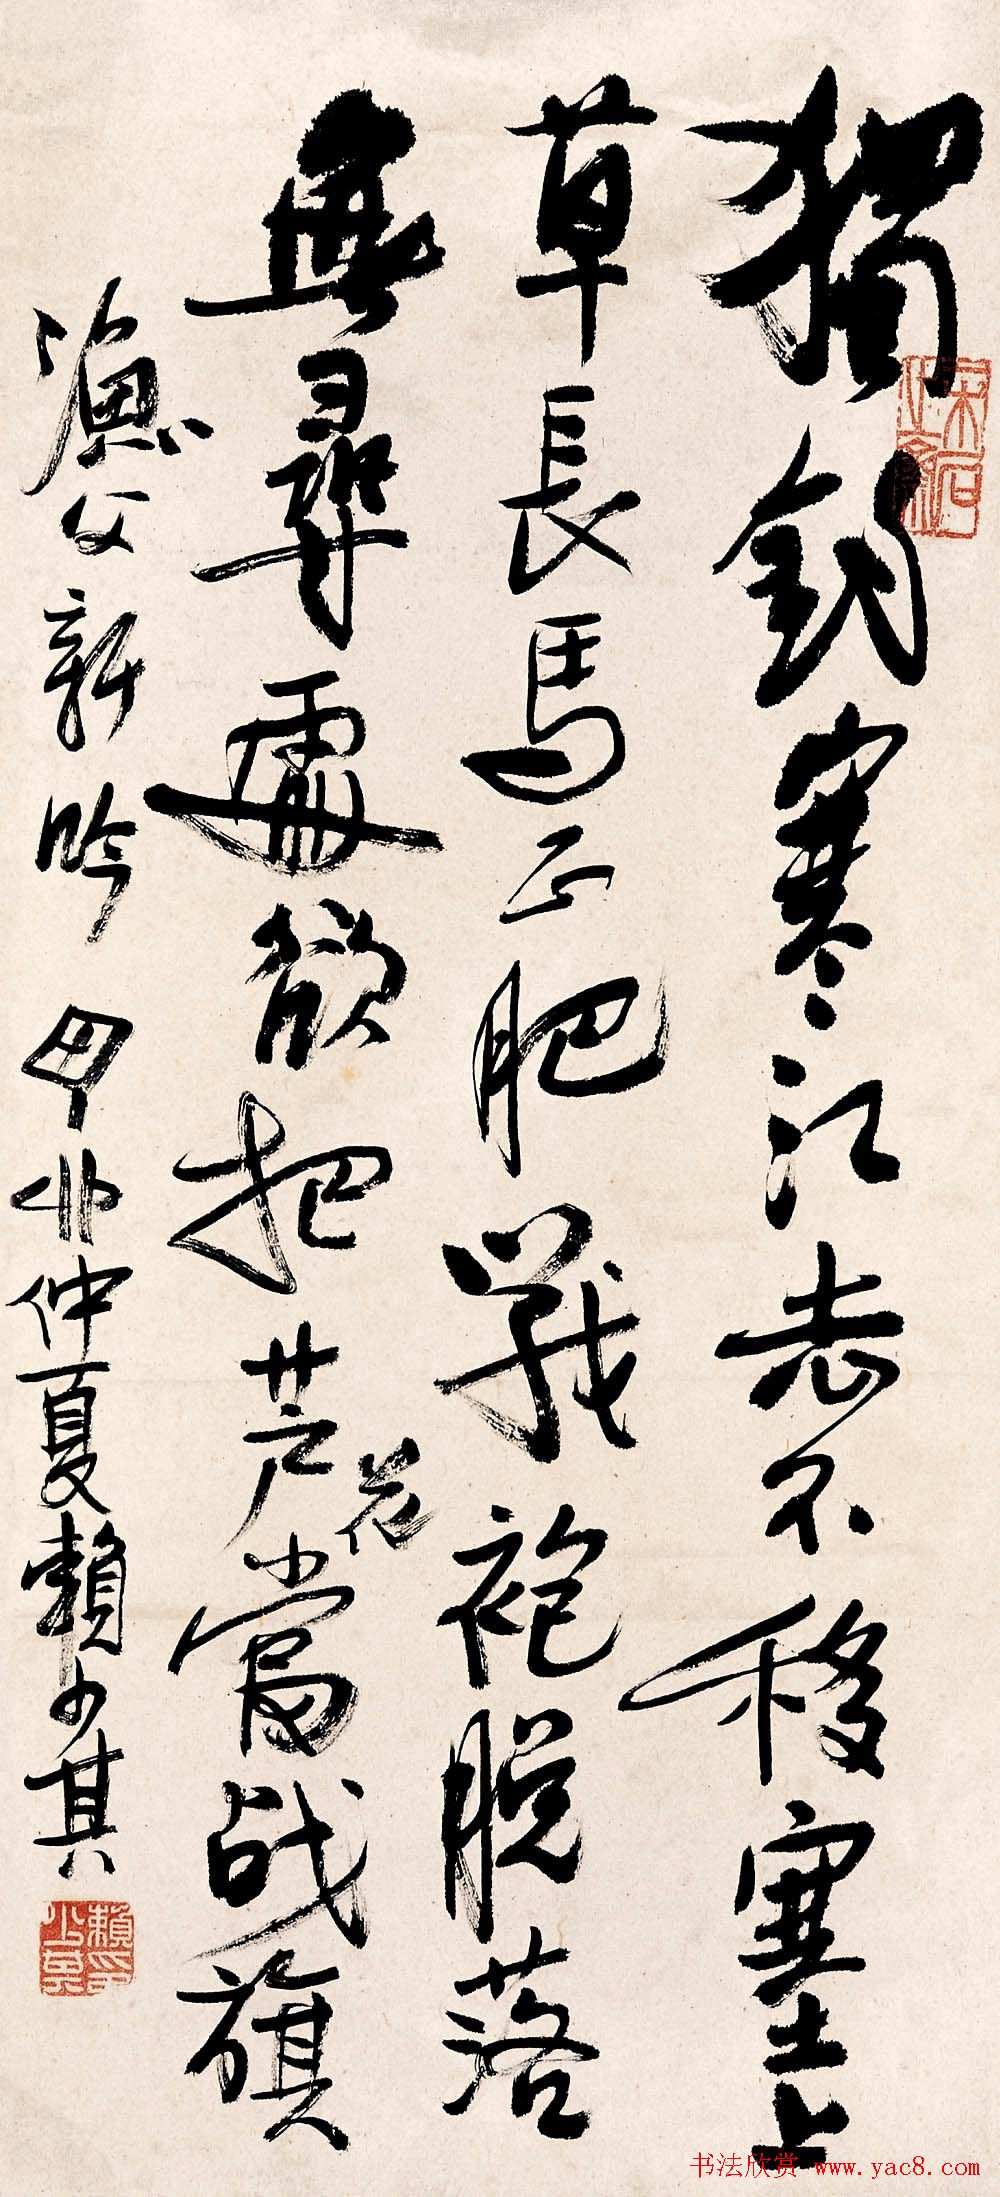 獨釣寒江志不移塞上
草長馬正肥戰袍脫落
無尋處欲把芦花當战旗
漁父新吟 甲 仲夏賴少其
賴少其印
书法欣赏 www.yac8.com